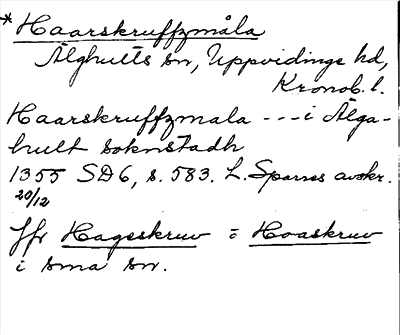 * Haarskruffzmåla
Älghults sn, Uppvidinge hd,
Kronob. l.
Haarskruffzmala --- i Älga-
hult soknstadh
1355 SD6, s. 583. L. Sparres avskr.
20/12
Jfr Hageskruv = Hoaskruv
i sma sn.